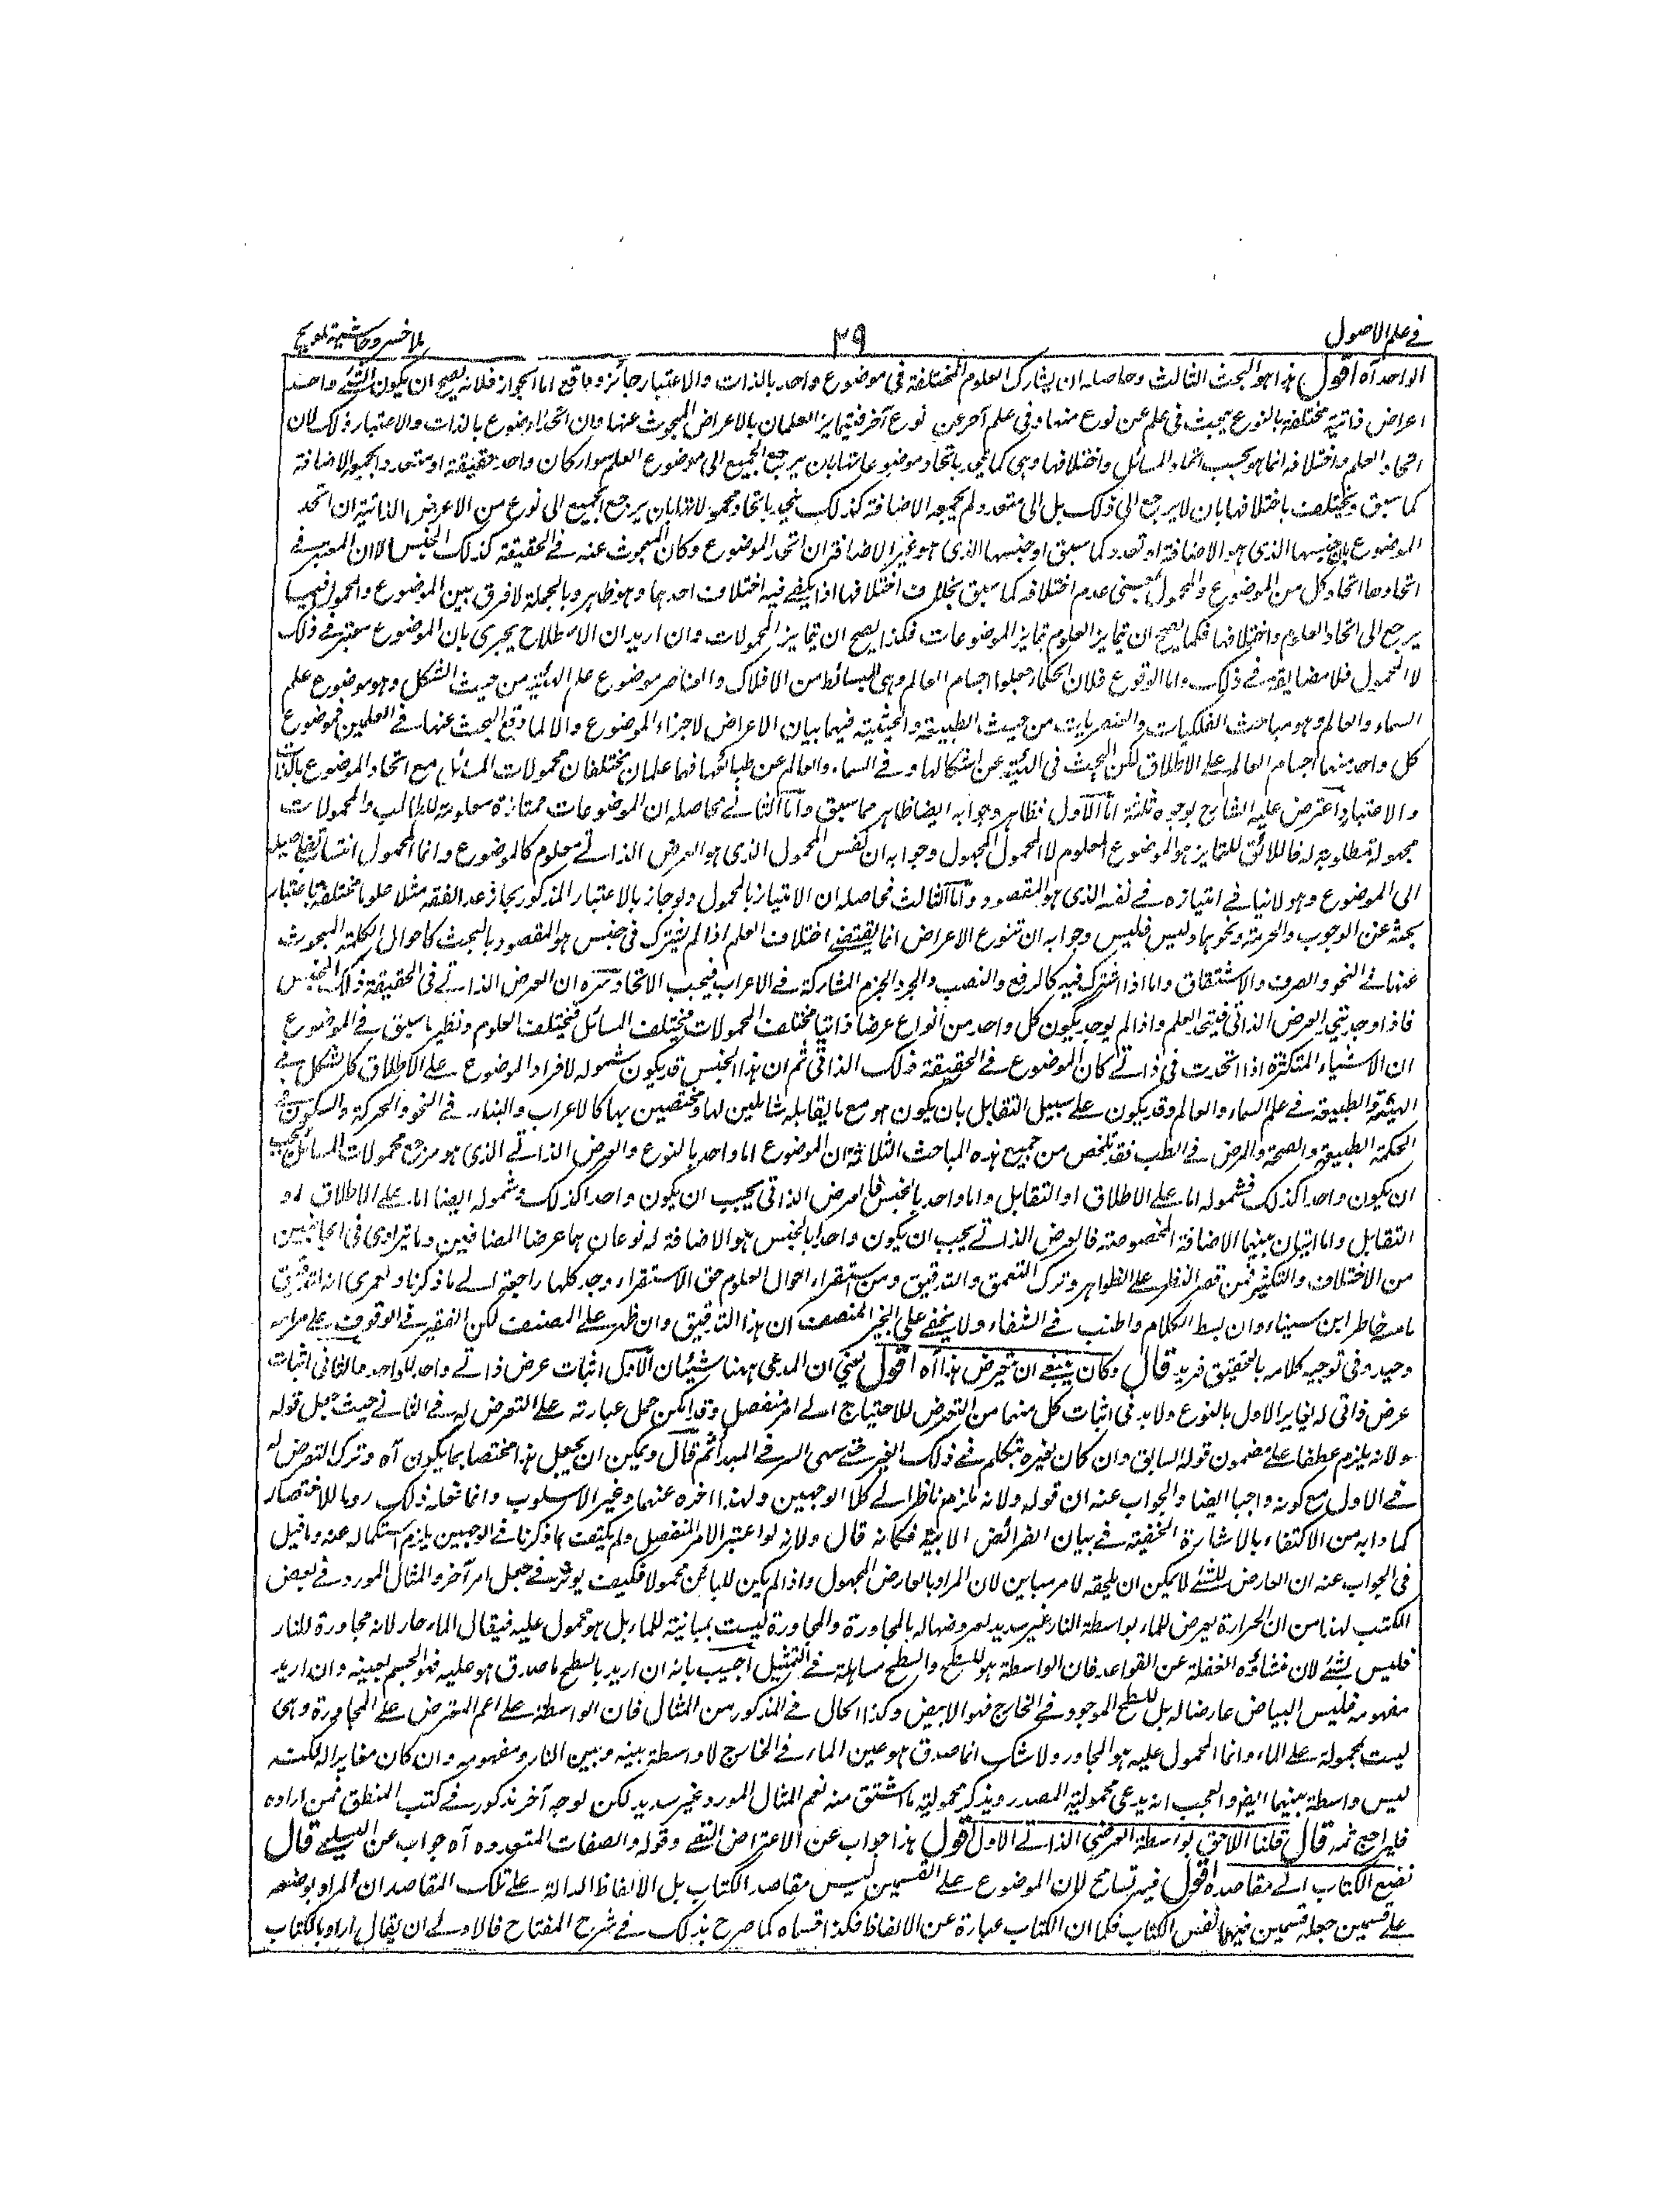 في علم الاصول
٣٩
ملا خسرو حاشية تلويح
الواحد آه اقول هذا هو البحث الثالث وحاصله ان يشارك العلوم المختلفة في موضوع واحد بالذات والاعتبار جائز وواقع اما الجواز فلانه يصح ان يكون لشئ واحد
اعراض ذاتية مختلفة بالنوع يبحث في علم عن نوع منها وفي علم آخر عن نوع آخر فيتمايز العلمان بالاعراض المبحوث عنها وان اتحد الموضوع بالذات والاعتبار وذلك لان
اتحاد العلم واختلافه انما هو بحسب اتحاد المسائل واختلافها وهي كما يتحد باتحاد موضوعاتها بان يرجع الجميع الى موضوع العلم سواء كان واحد حقيقة او متعدد يجمعه الاضافة
كما سبق ويختلف باختلافها بان لا يرجع الى ذلك بل الى متعدد ولم يجمعه الاضافة كذلك يتحد باتحاد محمولاتها بان يرجع الجميع الى نوع من الاعراض الذاتية ان اتحد
الموضوع او جنسها الذي هو الاضافة او تعدد كما سبق او جنسها الذي هو غير الاضافة ان اتحد الموضوع وكان المبحوث عنه في الحقيقة كذلك الجنس الا ان المعتبر في
اتحادها اتحاد كل من الموضوع والمحمول بمعنى عدم اختلافه كما سبق بخلاف اختلافها اذ يكفي فيه اختلاف احدهما وهو ظاهر وبالجملة لا فرق بين الموضوع والمحمول فيما
يرجع الى اتحاد العلوم واختلافها فكما يصح ان تمايز العلوم تمايز الموضوعات فكذا يصح ان تمايز المحمولات وان اريد ان الاصطلاح يجري بان الموضوع معتبر في ذلك
لا المحمول فلا مضايقة في ذلك واما الوقوع فلان الحكماء جعلوا اجسام العالم وهي البسائط من الافلاك والعناصر موضوع علم الهيئة من حيث الشكل وهو موضوع علم
السماء والعالم وهو مباحث الفلكيات والعنصريات من حيث الطبيعة والحيثية فيهما بيان الاعراض لاجزاء الموضوع والا لما وقع البحث عنها في العلمين فموضوع
كل واحد منهما اجسام العالم على الاطلاق لكن البحث في الهيئة عن اشكالها وفي السماء والعالم عن طبائعها فهما علمان مختلفان بمحمولات المسائل مع اتحاد الموضوع بالذات
والاعتبار واعترض عليه الشارح بوجوه ثلثة اما الاول فظاهر وجوابه ايضا ظاهر مما سبق واما الثاني فحاصله ان الموضوعات ممتازة معلومة للطالب والمحمولات
مجهولة مطلوبة له فاللائق للتمايز هو الموضوع المعلوم لا المحمول المجهول وجوابه ان نفس المحمول الذي هو العرض الذاتي معلوم كالموضوع وانما المجهول انتساب تفاصيله
الى الموضوع وهو لا ينافي امتيازه في نفسه الذي هو المقصود واما الثالث فحاصله ان الامتياز بالمحمول ولو جاز بالاعتبار المذكور لجاز عد الفقه مثلا علوما مختلفة باعتبار
بحثه عن الوجوب والحرمة ونحوهما وليس فليس وجوابه ان تنوع الاعراض انما يقتضي اختلاف العلم اذا لم يشترك في جنس هو المقصود بالبحث كاحوال الكلمة المبحوث
عنها في النحو والصرف والاشتقاق واما اذا اشترك فيه كالرفع والنصب والجر والجزم المشاركة في الاعراب فيجب الاتحاد سره ان العرض الذاتي في الحقيقة ذلك الجنس
فاذا وجد يتحد العرض الذاتي فيتحد العلم واذا لم يوجد يكون كل واحد من انواع عرضا ذاتيا فيختلف المحمولات فيختلف المسائل فيختلف العلوم ونظير ما سبق في الموضوع
ان الاشياء المتكثرة اذا اتحدت في ذاتي كان الموضوع في الحقيقة ذلك الذاتي ثم ان هذا الجنس قد يكون شموله لافراد الموضوع على الاطلاق كالشكل في
الهيئة والطبيعة في علم السماء والعالم وقد يكون على سبيل التقابل بان يكون هو مع ما يقابله شاملين لها ومختصين بها كالاعراب والبناء في النحو والحركة والسكون في
الحكمة الطبيعية والصحة والمرض في الطب فقد تلخص من جميع هذه المباحث الثلاثة ان الموضوع اما واحد بالنوع والعرض الذاتي الذي هو مرجع محمولات المسائل يجب
ان يكون واحدا كذلك فشموله اما على الاطلاق او التقابل واما واحد بالجنس فالعرض الذاتي يجب ان يكون واحدا كذلك وشموله ايضا اما على الاطلاق او
التقابل واما اثنان بينهما الاضافة المخصوصة فالعرض الذاتي يجب ان يكون واحدا بالجنس هو الاضافة له نوعان هما عرضا المضافين وما يتراوى في الجانبين
من الاختلاف والتكثير فمن قصر النظر على الظواهر وترك التعمق والتدقيق ومن استقرء احوال العلوم حق الاستقراء وجد كلها راجعة الى ما ذكرنا ولعمري انه لتدقيق
ما مسه خاطر ابن سيناء وان بسط الكلام واطنب في الشفاء ولا يخفى على الخبير المنصف ان هذا التدقيق وان ظهر على المصنف لكن الفقير في الوقوف على مرامه
وحيد وفي توجيه كلامه بالتحقيق فريد قال وكان ينبغي ان يتعرض هذا آه اقول يعني ان المدعى ههنا شيئان الاول اثبات عرض ذاتي واحد للواحد والثاني اثبات
عرض ذاتي له يغاير الاول بالنوع ولا بد في اثبات كل منهما من التعرض للاحتياج الى امر منفصل وقد امكن حمل عبارته على التعرض له في الثاني حيث جعل قوله
ولانه يلزم عطفا على مضمون قوله السابق وان كان لغيره نتكلم في ذلك الغير حتى ينتهي الى المبدأ ثم قال ويمكن ان يجعل هذا مختصا بما يكون آه وترك التعرض له
في الاول مع كونه واجبا ايضا والجواب عنه ان قوله ولانه يلزم ناظر الى كلا الوجهين ولهذا اخره عنهما وغير الاسلوب وانما فعله ذلك روما للاختصار
كما دابه من الاكتفاء بالاشارة الخفية في بيان الفرائض الابية فكانه قال ولانه لو اعتبر الامر المنفصل ولم يكتف بما ذكرنا في الوجهين يلزم استكماله عنه وما قيل
في الجواب عنه ان العارض للشئ لا يمكن ان يلحقه لامر مباين لان المراد بالعارض المحمول واذا لم يكن للمباين محمولا فكيف يؤثر في حمل امر آخر والمثال المورد في بعض
الكتب لهذا من ان الحرارة يعرض للماء بواسطة النار غير سديد لعروضها له بالمجاورة والمجاورة ليست بمباينة للماء بل هو محمول عليه فيقال الماء حار لانه مجاورة للنار
فليس بشئ لان منشاؤه الغفلة عن القواعد فان الواسطة هو السطح والسطح مساهلة في التمثيل اجيب بانه ان اريد بالسطح ما صدق هو عليه فهو الجسم بعينه وان اريد
مفهومه فليس البياض عارضا له بل للسطح الموجود في الخارج فهو الابيض وكذا الحال في المذكور من المثال فان الواسطة على اعم المعترض على المجاورة وهي
ليست بمحمولة على الماء وانما المحمول عليه هو المجاور ولا شك انما صدق هو عين الماء في الخارج لا واسطة بينه وبين النار ومفهومه وان كان مغايرا لكنه
ليس واسطة بينهما ايضا والعجب انه يدعي محمولية المصدر ويذكر محمولية ما اشتق منه نعم المثال المورد غير سديد لكن لوجه آخر مذكور في كتب المنطق فمن اراده
فليراجع ثمه قال قلنا اللاحق بواسطة العرضي الذاتي الاول اقول هذا جواب عن الاعتراض النقضي وقوله والصفات المتعددة آه جواب عن قال
نضع الكتاب الى مقاصده اقول فيه تسامح لان الموضوع على القسمين ليس مقاصد الكتاب بل الالفاظ الدالة على تلك المقاصد ان المراد بوضعه
على قسمين جعله قسمين فيهما نفس الكتاب فكما ان الكتاب عبارة عن الالفاظ فكذا اقسامه كما صرح بذلك في شرح المفتاح فالاولى ان يقال اراد بالكتاب